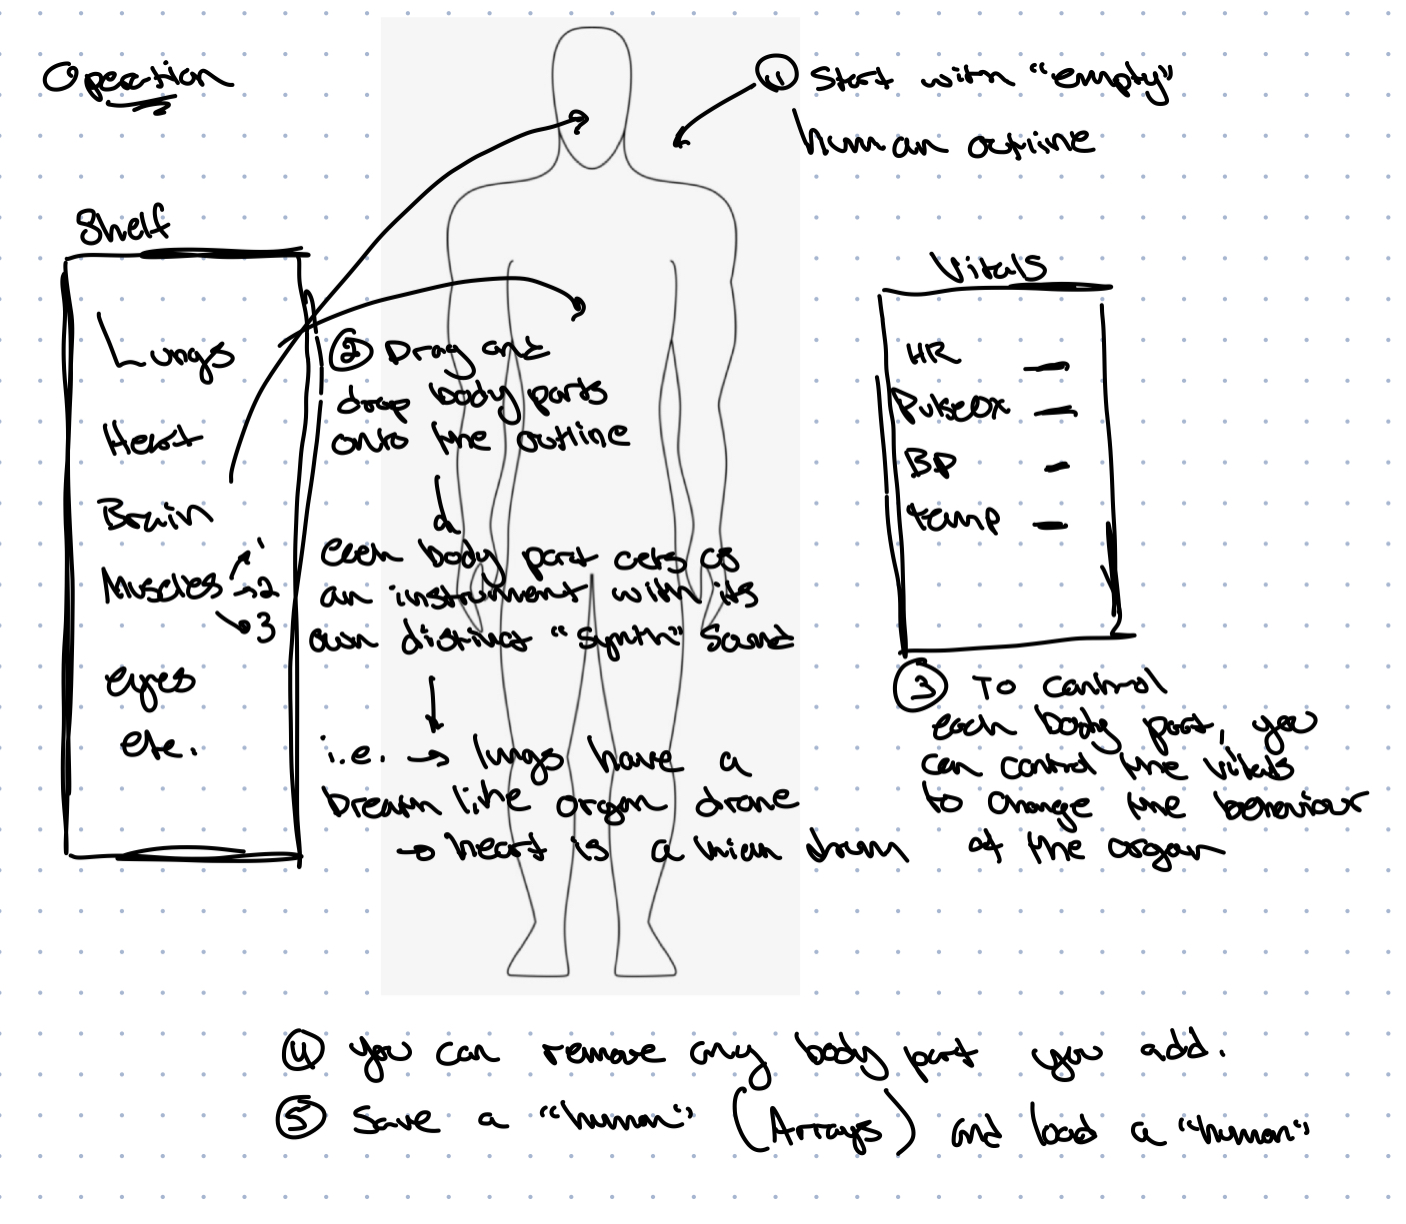 Operation
① Start with "empty"
human outline
Shelf
Lungs
Heart
Brain
Muscles
1
2
3
eyes
etc.
② Drag and
drop body parts
onto the outline
each body part acts as
an instrument with its
own distinct "synth" sound
i.e. → lungs have a
breath like organ drone
→ heart is a drum
Vitals
HR —
PulseOx —
BP —
temp —
③ To control
each body part, you
can control the vitals
to change the behaviour
of the organ
④ you can remove any body part you add.
⑤ Save a "human" (Arrays) and load a "human"